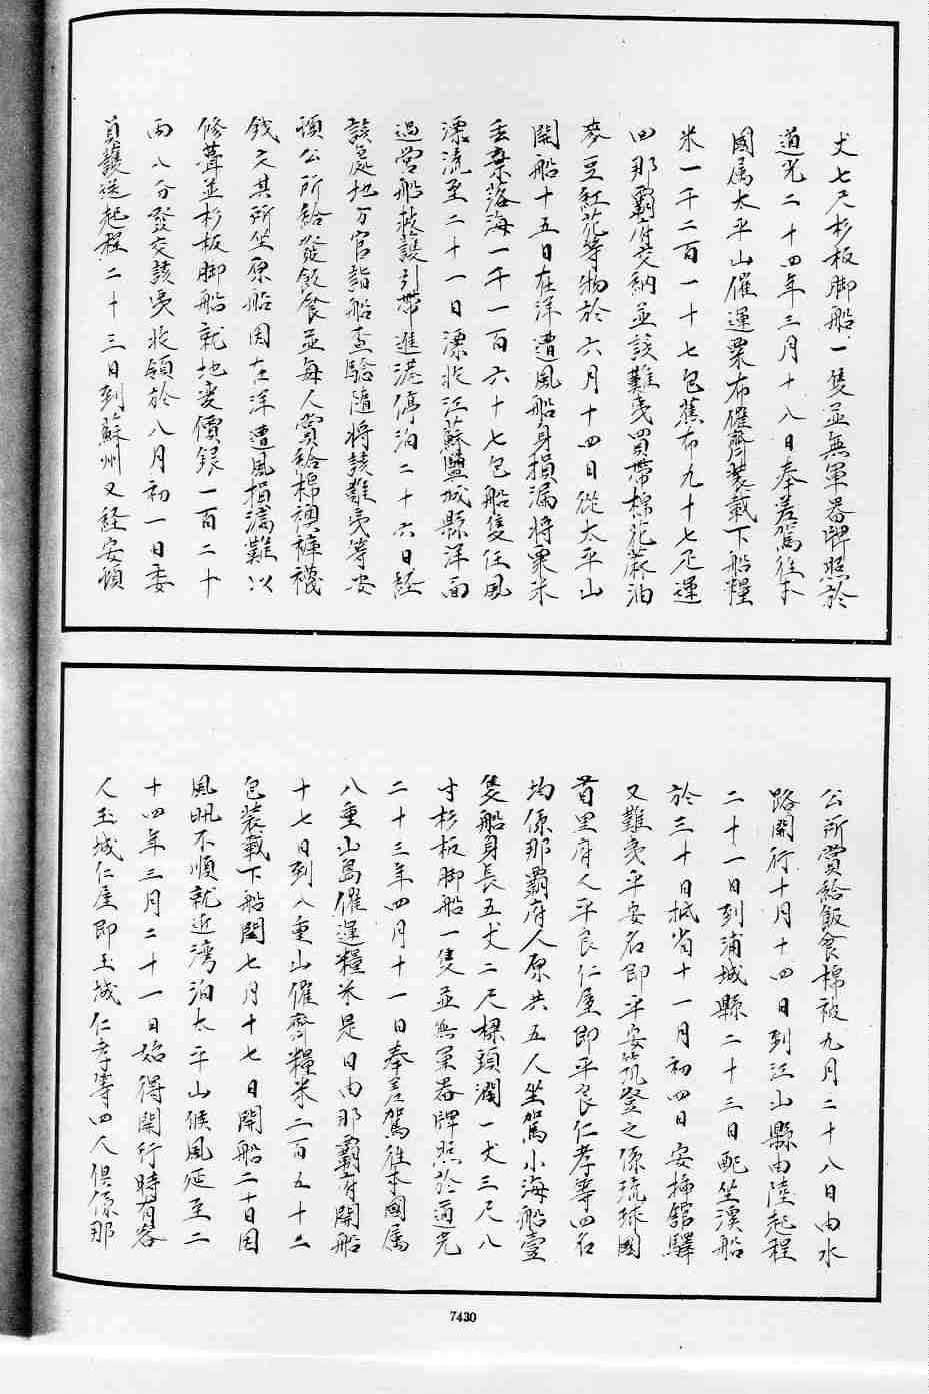 丈七尺杉板脚船一隻並無軍器牌照於
道光二十四年三月十八日奉差駕往本
國属太平山催運粟布催齊装載下船糧
米一千二百一十七包蕉布九十七疋運
回那霸府交納並該難夷買帶棉花蔴油
麥豆紅花等物於六月十四日從太平山
開船十五日在洋遭風船身損漏將粟米
丢棄落海一千一百六十七包船隻任風
漂流至二十一日漂收江蘇鹽城縣洋面
過营船救護引帶進港停泊二十六日経
該處地方官詣船查驗隨將該難夷等安
頓公所給發飯食並每人賞給棉襖褲襪
錢文其所坐原船因在洋遭風損漏難以
修葺並杉板脚船就地变價銀一百二十
两八分發交該夷收領於八月初一日委
員護送起程二十三日到蘇州又経安頓
公所賞給飯食棉被九月二十八日由水
路開行十月十四日到江山縣由陸起程
二十一日到浦城縣二十三日配坐溪船
於三十日抵省十一月初四日安插舘驛
又難夷平安名即平安筑登之係琉球國
首里府人平良仁屋即平良仁孝等四名
均係那霸府人原共五人坐駕小海船壹
隻船身長五丈二尺樑頭濶一丈三尺八
寸杉板脚船一隻並無軍器牌照於道光
二十三年四月十一日奉差駕往本國属
八重山島催運糧米是日由那霸府開船
十七日到八重山催齊糧米二百五十二
包装載下船閏七月十七日開船二十日因
風帆不順就近湾泊太平山候風延至二
十四年三月二十一日始得開行時有客
人玉城仁屋即玉城仁孝等四人俱係那
7430